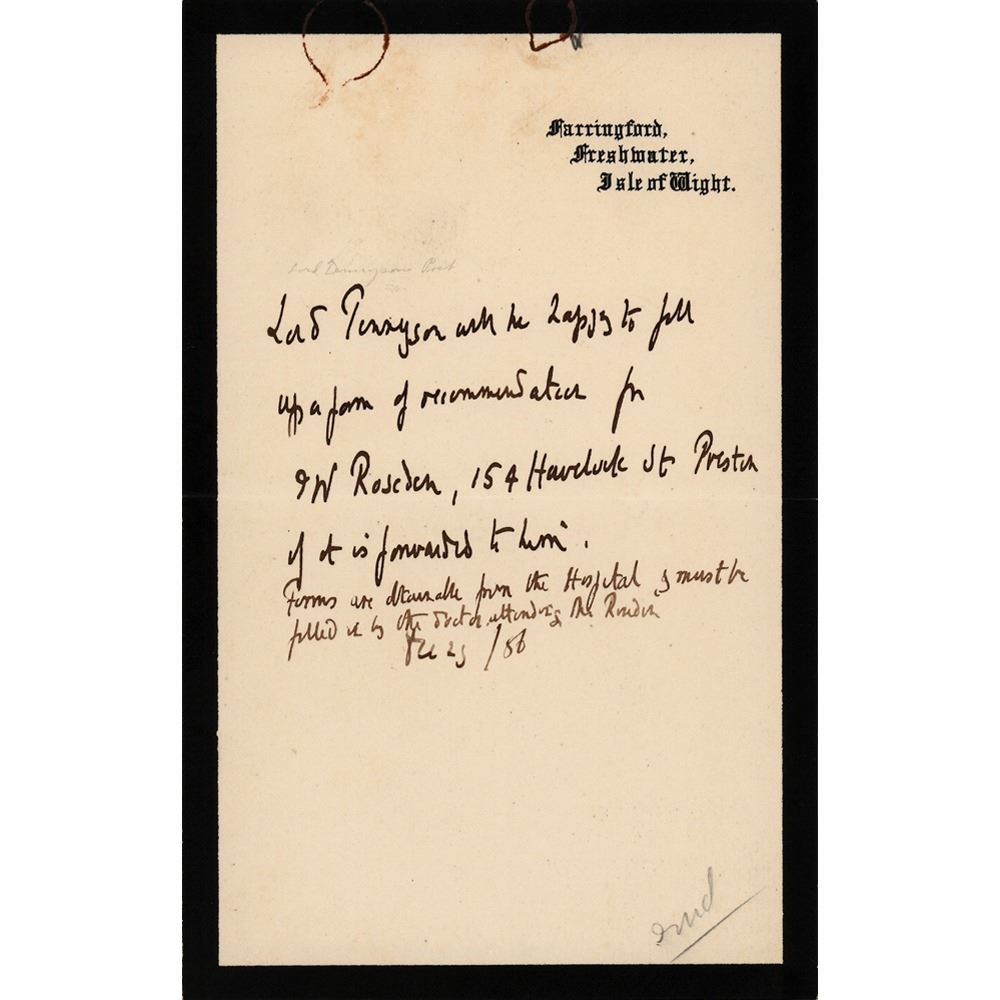 Farringford,
Freshwater,
Isle of Wight.
Lord Tennyson's Poet
Lord Tennyson will be happy to fill
up a form of recommendation for
W Roseden, 154 Havelock St Preston
if it is forwarded to him.
Forms are obtainable from the Hospital & must be
filled in by the doctor attending Mr Roseden
Dec 29 / 86